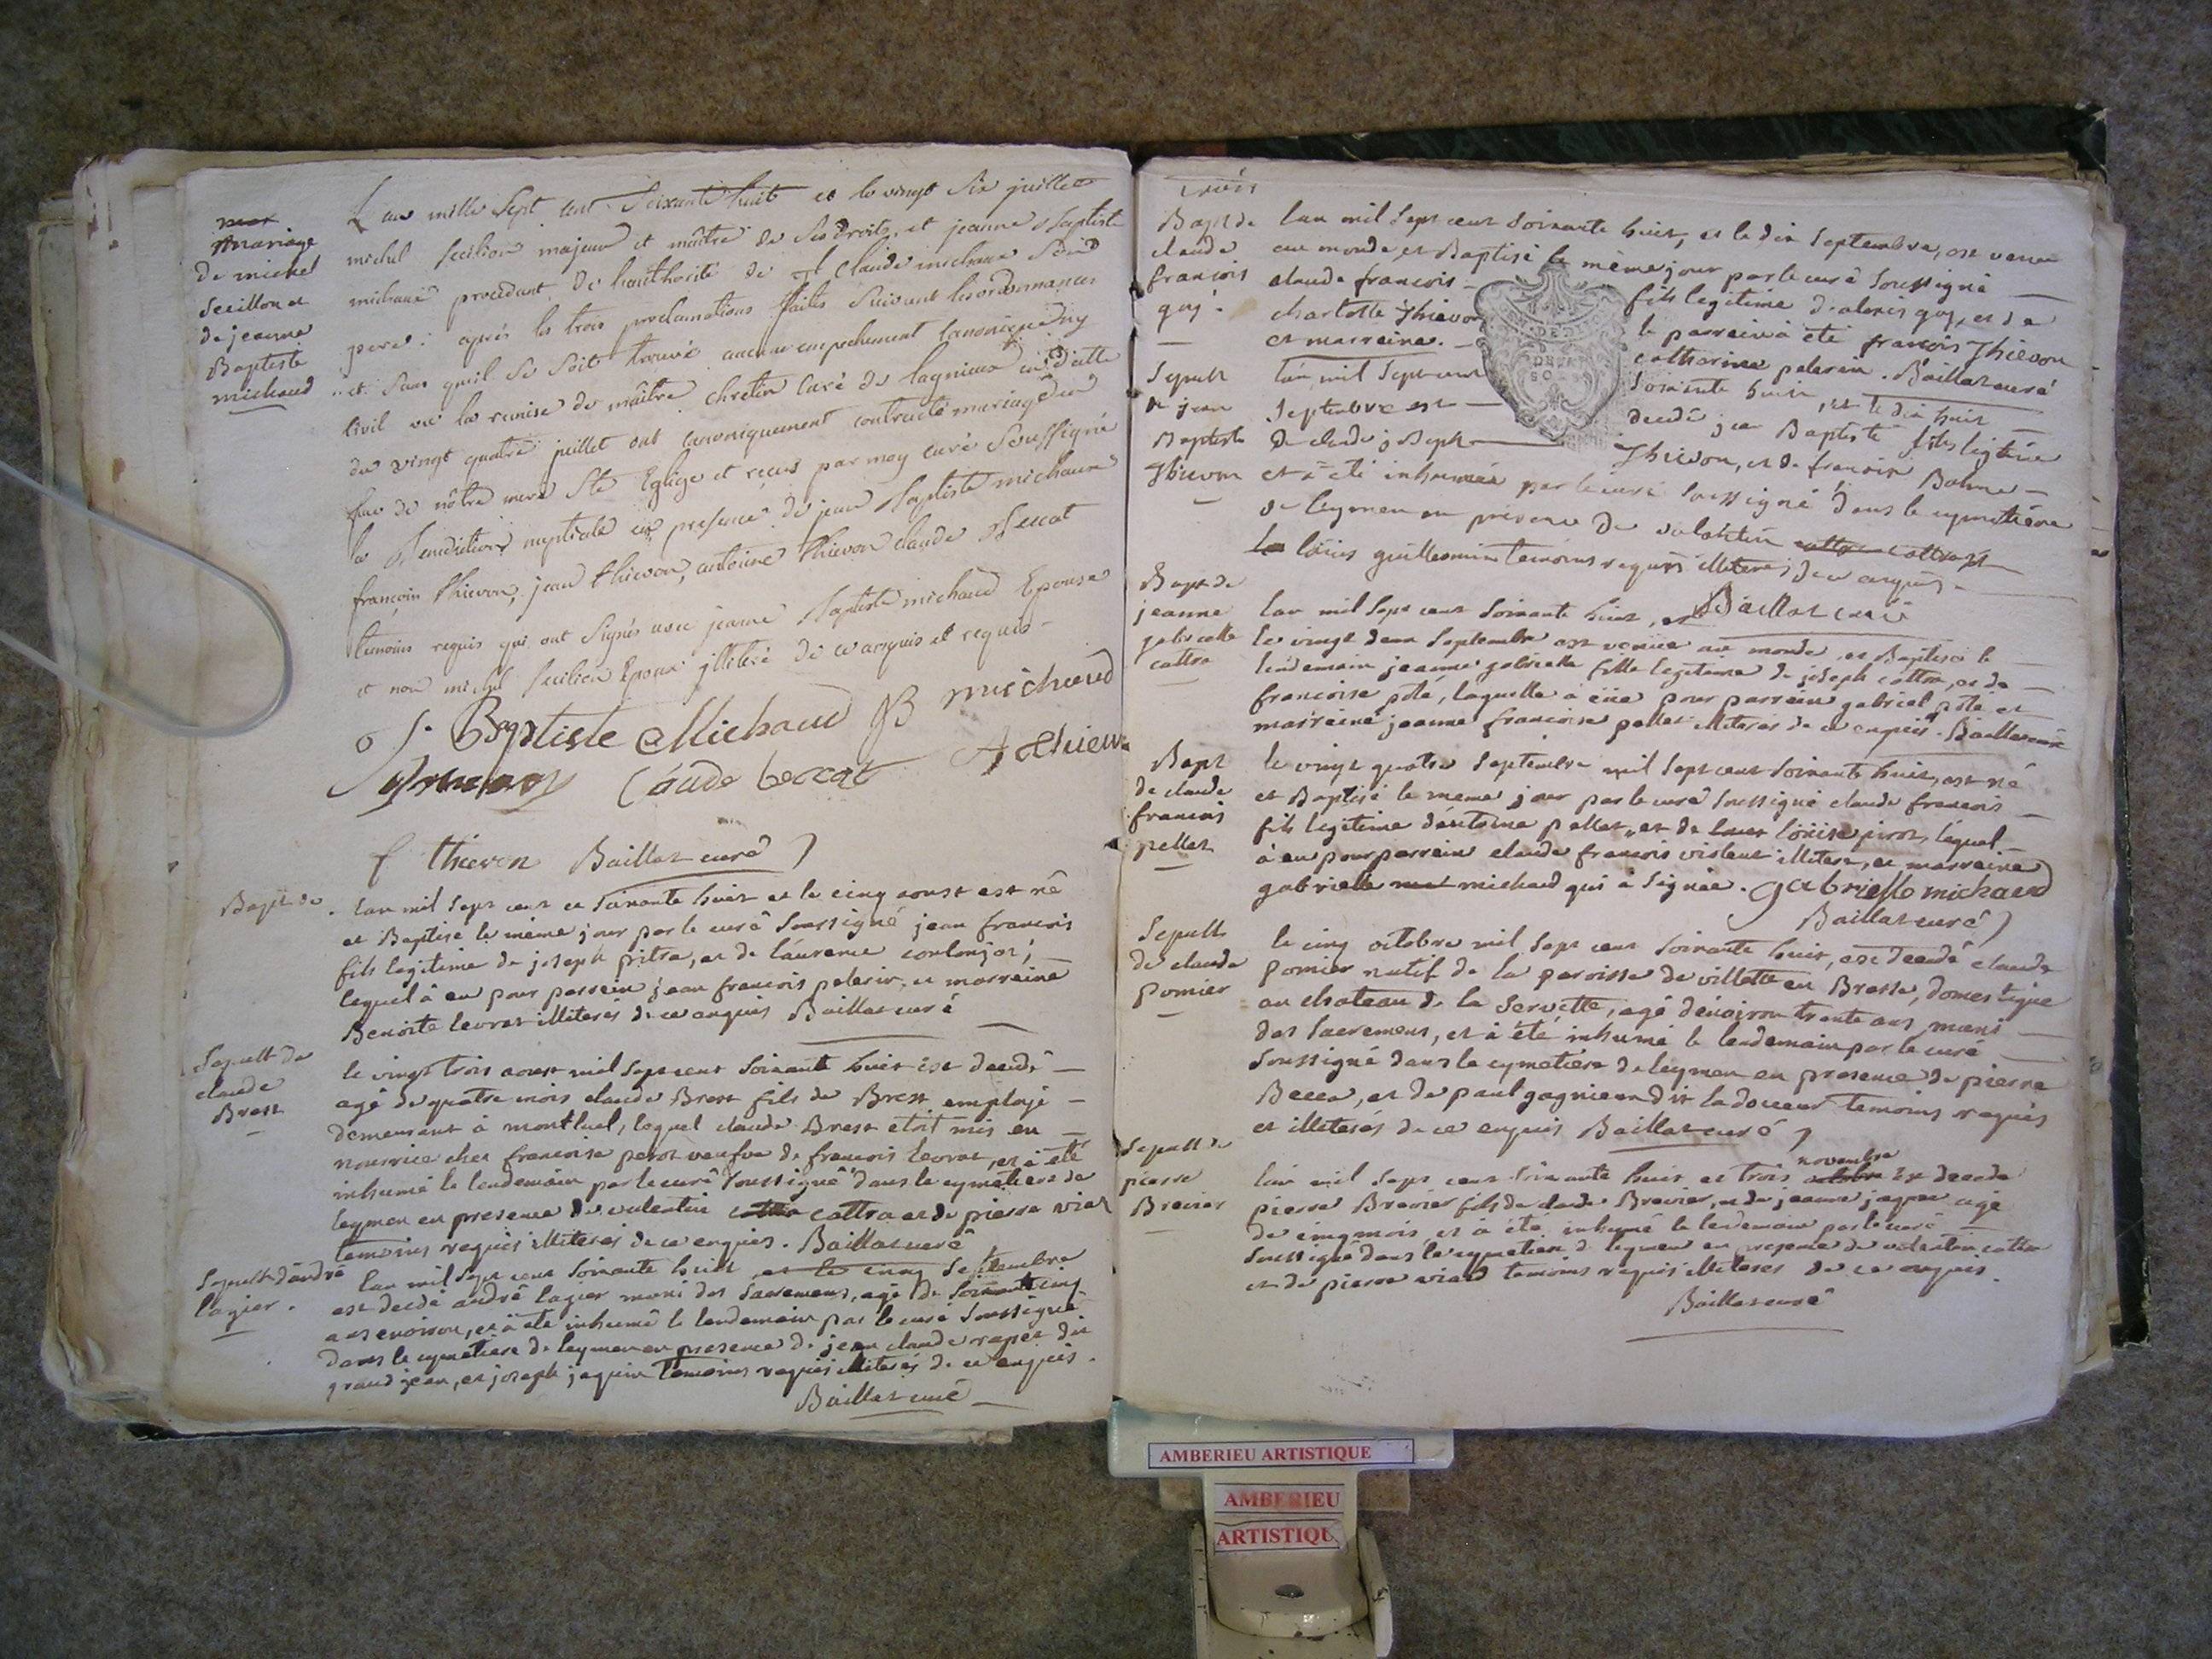 mar
Mariage
de michel
Secillon et
de jeanne
Baptiste
michaud
L'an mille Sept cent Soixante huit et le vingt Six juillet
michel Secilion majeur et maître de Ses droits, et jeanne Baptiste
michaud procedant de l'authorité de Sr Claude michaux Son
pere: aprés les trois proclamations faites Suivant les ordonnances
et Sans quil Se Soit trouvé aucun empechement Canonique ny
Civil vû la remise de maître chretin Curé de lagnieux en datte
du vingt quatre juillet ont canoniquement contracté mariage en
face de nôtre mere Ste Eglise et reçus par moy curé Soussigné
la Benediction nuptiale en presence de jean Baptiste michaux
françoin thievon, jean thievon, antoine thievon claude Beccat
temoins requis qui ont Signés avec jeanne Baptiste michaud Epouse
et non michel Secilion Epoux illiteré de ce anquis et requis
J. Baptiste Michaud JB michaud
Claude beccat A thievon
f thievon Baillat curé
Bapt de
lan mil Sept cent et Soixante huit et le cinq aoust est né
et Baptisé le méme jour par le curé Soussigné jean francois
fils legitime de joseph pitra, et de laurence coulonjot,
lequel â eu pour parrein jean francois pelerin, et marreine
Benoite levrat illiterés de ce enquis Baillat curé
Sepult de
claude
Brest
le vingt trois aoust mil Sept cent Soixante huit est decedé
agé de quatre mois claude Brest fils de Brest employé
demeurant â montluel, lequel claude Brest etoit mis en
nourrice chez francoise perot veufve de francois levrat, et â eté
inhumé le lendemain par le curé Soussigné dans le cymetiere de
leymen en presence de valentin cattra et de pierre viat
temoins requis illiterés de ce enquis. Baillat curé
Sepult d'andré
lagier.
lan mil Sept cent Soixante huit et le cinq Septembre
est decedé andré lagier muni des Sacremens, agé de Soixante cinq
ans environ, et â eté inhumé le lendemain par le curé Soussigné
dans le cymetiere de leymen en presence de jean claude rapet dit
grand jean, et joseph jaquin temoins requis illiterés de ce enquis.
Baillat curé
trois
Bapt de
claude
francois
guy.
lan mil Sept cent Soixante huit, et le dix Septembre, est venu
au monde, et Baptisé le même jour par le curé Soussigné
claude francois fils legitime d'alexis guy, et de
charlotte Thievon le parrein â eté francois Thievon
et marreine catherine pelerin. Baillat curé
Sepult
de jean
Baptiste
Thievon
lan mil Sept cent Soixante huit, et le dix huit
Septembre est decedé jean Baptiste fils legitime
De claude joseph Thievon, et de francoise Bohme
et â eté inhumée par le curé Soussigné dans le cymetiere
de leymen en presence de valentin cattra
louis guillermin temoins requis illiterés de ce enquis
Baillat curé
Bapt de
jeanne
gabrielle
cattra
lan mil Sept cent Soixante huit, et
le vingt deux Septembre est venue au monde, et Baptisée le
lendemain jeanne gabrielle fille legitime de joseph cattra, et de
francoise poté, laquelle â eue pour parrein gabriel poté et
marreine jeanne francoise pellet illiterés de ce enquis. Baillat curé
Bapt
de claude
francois
pellet
le vingt quatre Septembre mil Sept cent Soixante huit, est né
et Baptisé le meme jour par le curé Soussigné claude francois
fils legitime d'antoine pellet, et de louise pirot, lequel
â eu pour parrein claude francois violent illiteré, et marreine
gabrielle michaud qui â Signée. gabrielle michaud
Baillat curé
Sepult
de claude
pomier
le cinq octobre mil Sept cent Soixante huit, est decedé claude
pomier natif de la paroisse de villette en Bresse, domestique
au chateau de la Servette, agé d'environ trente ans, muni
des Sacremens, et â été inhumé le lendemain par le curé
Soussigné dans le cymetiere de leymen en presence de pierre
Becca, et de paul gagnieur dit la douceur temoins requis
et illiterés de ce enquis Baillat curé
Sepult de
pierre
Brevier
lan mil Sept cent Soixante huit et trois novembre est decedé
pierre Brevier fils de claude Brevier, et de jeanne jaquin agé
de cinq mois, et â été inhumé le lendemain par le curé
Soussigné dans le cymetiere de leymen en presence de valentin cattra
et de pierre viand temoins requis illiterés de ce enquis.
Baillat curé
AMBERIEU ARTISTIQUE
AMBERIEU
ARTISTIQU